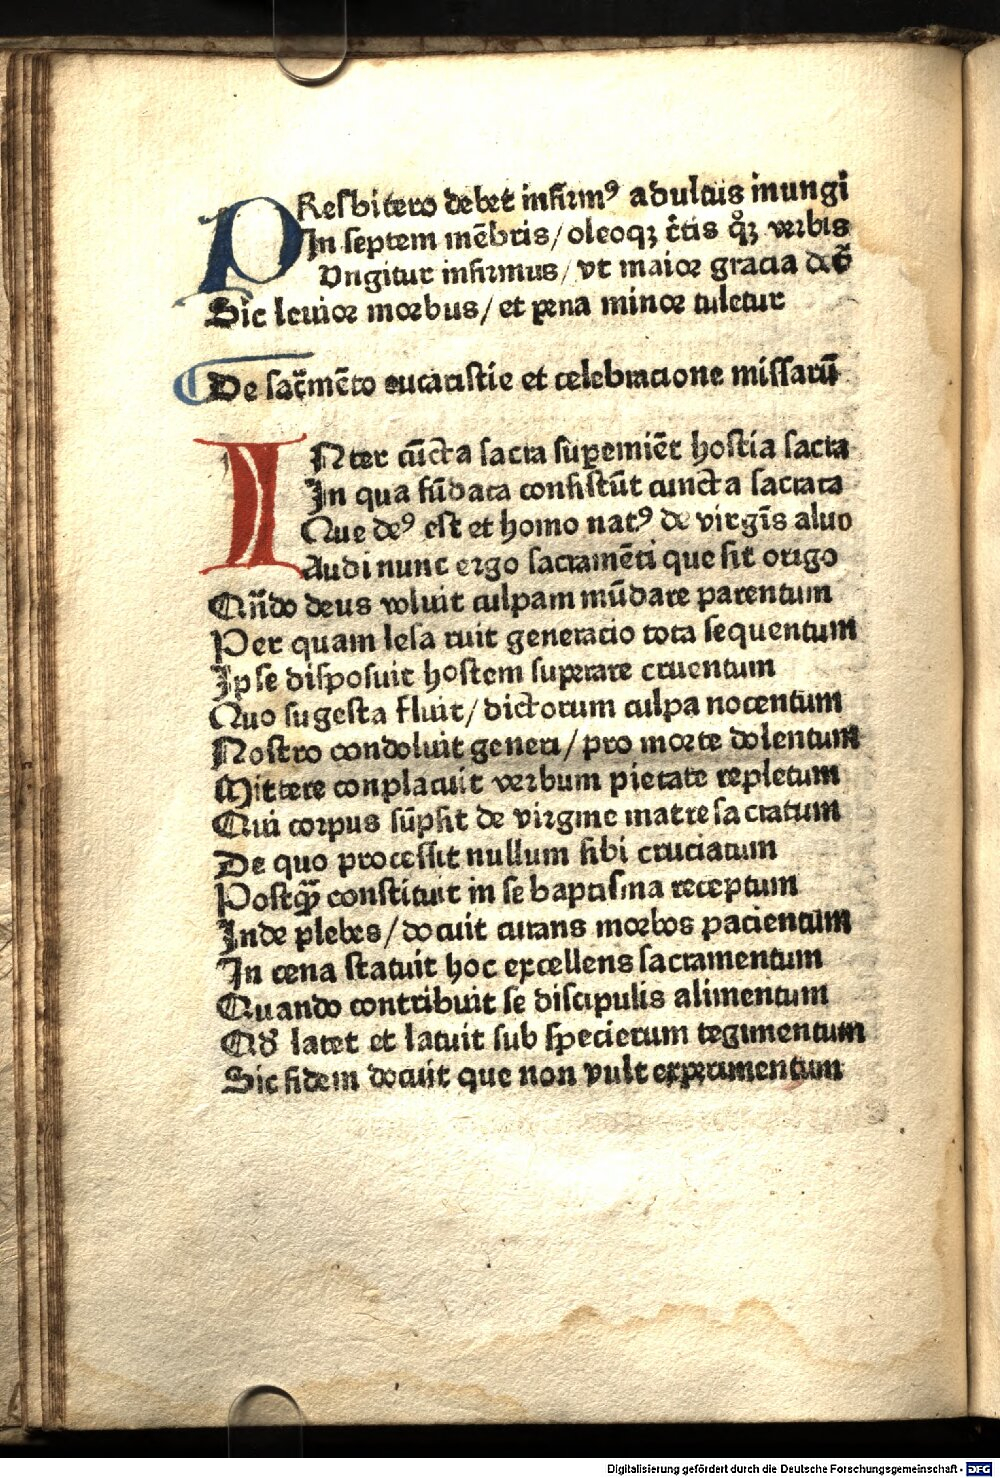 PResbitero debet infirmꝰ adultus inungi
In septem mēbris/ oleoqꝫ c̄tis qͦꝫ verbis
Vngitur infirmus/ vt maior gracia
Sic leuior morbus/ et pena minor tuletur
De sac̄mēto eucaristie et celebracione missarū
INter cūcta sacra supemiēt hostia sacra
In qua fūdata consistūt cuncta sacrata
Que deꝰ est et homo natꝰ de virgīs aluo
Audi nunc ergo sacramēti que sit origo
Qn̄do deus voluit culpam mūdare parentum
Per quam lesa ruit generacio tota sequentum
Ipse disposuit hostem superare cruentum
Quo sugesta fluit/ dictorum culpa nocentum
Nostro condoluit generi/ pro morte dolentum
Mittere conplacuit verbum pietate repletum
Qui corpus sūpsit de virgine matre sacratum
De quo processit nullum sibi cruciatum
Postqꝫ̄ constituit in se baptisma receptum
Inde plebes/ docuit curans morbos pacientum
In cena statuit hoc excellens sacramentum
Quando contribuit se discipulis alimentum
Qd̛ latet et latuit sub specierum tegimentum
Sic fidem docuit que non vult experimentum
Digitalisierung gefördert durch die Deutsche Forschungsgemeinschaft - DFG